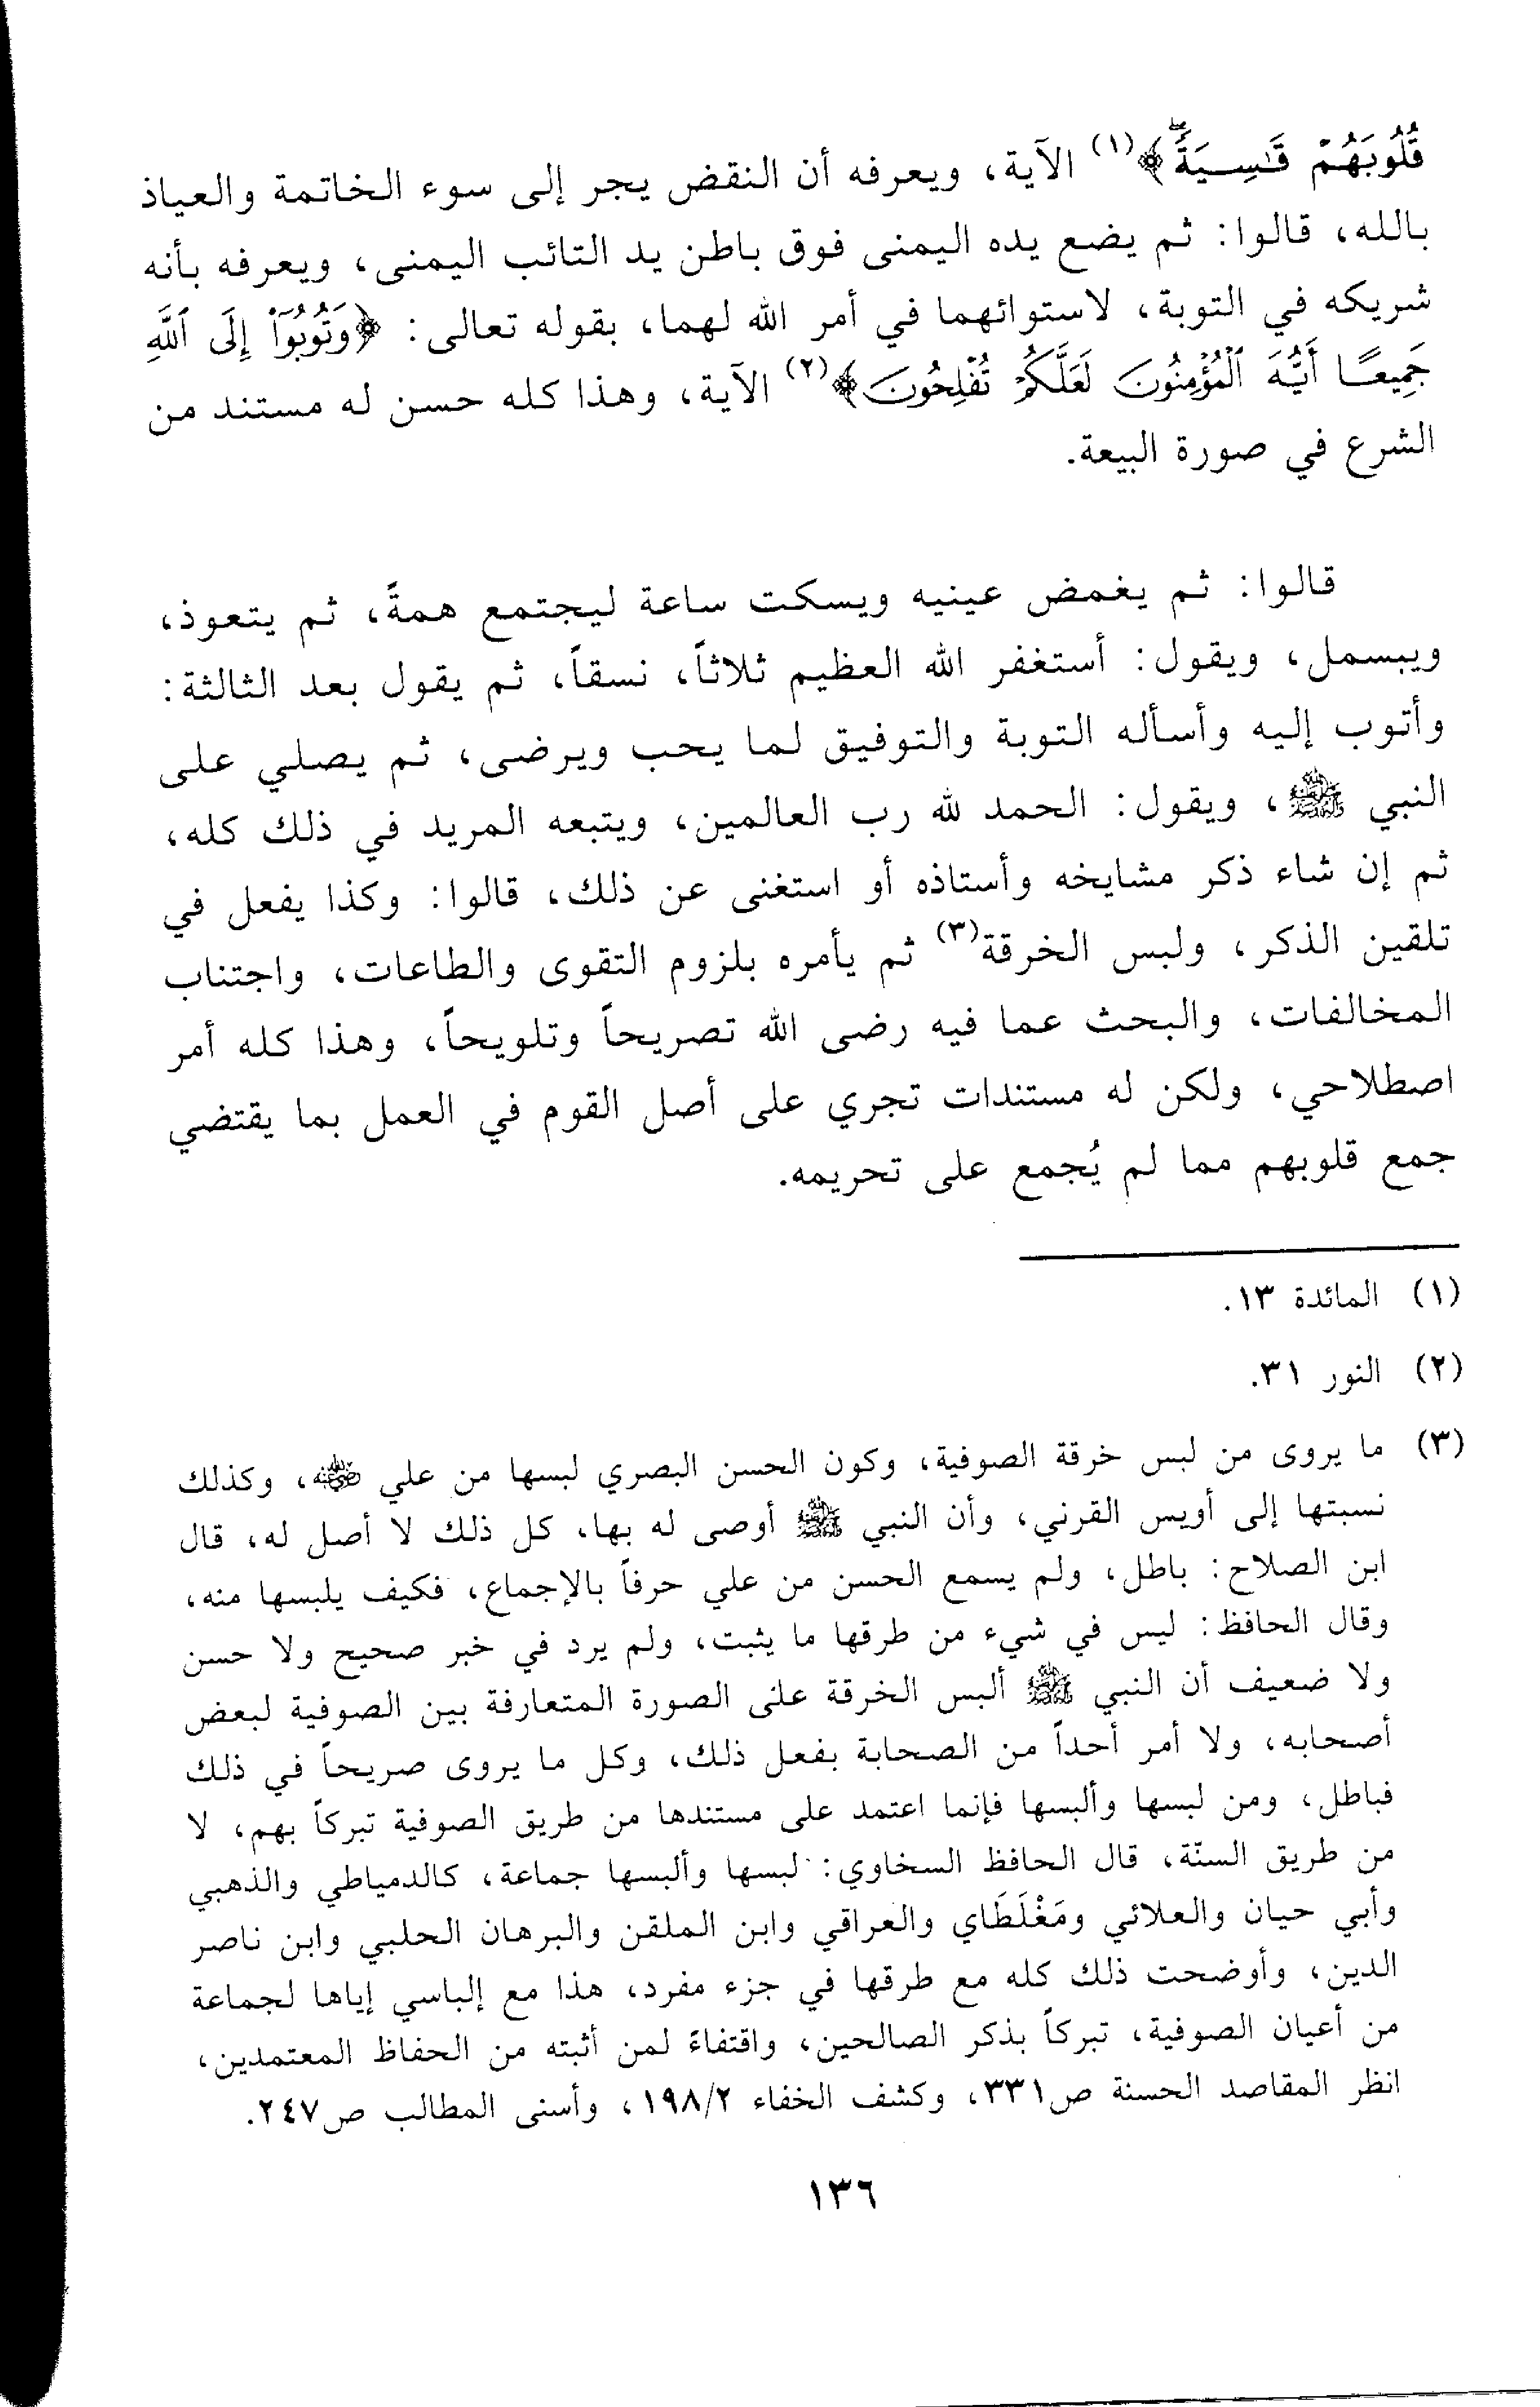 قُلُوبَهُمْ قَاسِيَةً﴾(١) الآية، ويعرفه أن النقض يجر إلى سوء الخاتمة والعياذ
بالله، قالوا: ثم يضع يده اليمنى فوق باطن يد التائب اليمنى، ويعرفه بأنه
شريكه في التوبة، لاستوائهما في أمر الله لهما، بقوله تعالى: ﴿وَتُوبُوٓا۟ إِلَى ٱللَّهِ
جَمِيعًا أَيُّهَ ٱلْمُؤْمِنُونَ لَعَلَّكُمْ تُفْلِحُونَ﴾(٢) الآية، وهذا كله حسن له مستند من
الشرع في صورة البيعة.
قالوا: ثم يغمض عينيه ويسكت ساعة ليجتمع همةً، ثم يتعوذ،
ويبسمل، ويقول: أستغفر الله العظيم ثلاثاً، نسقاً، ثم يقول بعد الثالثة:
وأتوب إليه وأسأله التوبة والتوفيق لما يحب ويرضى، ثم يصلي على
النبي ﷺ، ويقول: الحمد لله رب العالمين، ويتبعه المريد في ذلك كله،
ثم إن شاء ذكر مشايخه وأستاذه أو استغنى عن ذلك، قالوا: وكذا يفعل في
تلقين الذكر، ولبس الخرقة(٣) ثم يأمره بلزوم التقوى والطاعات، واجتناب
المخالفات، والبحث عما فيه رضى الله تصريحاً وتلويحاً، وهذا كله أمر
اصطلاحي، ولكن له مستندات تجري على أصل القوم في العمل بما يقتضي
جمع قلوبهم مما لم يُجمع على تحريمه.
(١) المائدة ١٣.
(٢) النور ٣١.
(٣) ما يروى من لبس خرقة الصوفية، وكون الحسن البصري لبسها من علي رضي الله عنه، وكذلك
نسبتها إلى أويس القرني، وأن النبي ﷺ أوصى له بها، كل ذلك لا أصل له، قال
ابن الصلاح: باطل، ولم يسمع الحسن من علي حرفاً بالإجماع، فكيف يلبسها منه،
وقال الحافظ: ليس في شيء من طرقها ما يثبت، ولم يرد في خبر صحيح ولا حسن
ولا ضعيف أن النبي ﷺ ألبس الخرقة على الصورة المتعارفة بين الصوفية لبعض
أصحابه، ولا أمر أحداً من الصحابة بفعل ذلك، وكل ما يروى صريحاً في ذلك
فباطل، ومن لبسها وألبسها فإنما اعتمد على مستندها من طريق الصوفية تبركاً بهم، لا
من طريق السنّة، قال الحافظ السخاوي: لبسها وألبسها جماعة، كالدمياطي والذهبي
وأبي حيان والعلائي ومَغْلَطَاي والعراقي وابن الملقن والبرهان الحلبي وابن ناصر
الدين، وأوضحت ذلك كله مع طرقها في جزء مفرد، هذا مع إلباسي إياها لجماعة
من أعيان الصوفية، تبركاً بذكر الصالحين، واقتفاءً لمن أثبته من الحفاظ المعتمدين،
انظر المقاصد الحسنة ص٣٣١، وكشف الخفاء ١٩٨/٢، وأسنى المطالب ص٢٤٧.
١٣٦